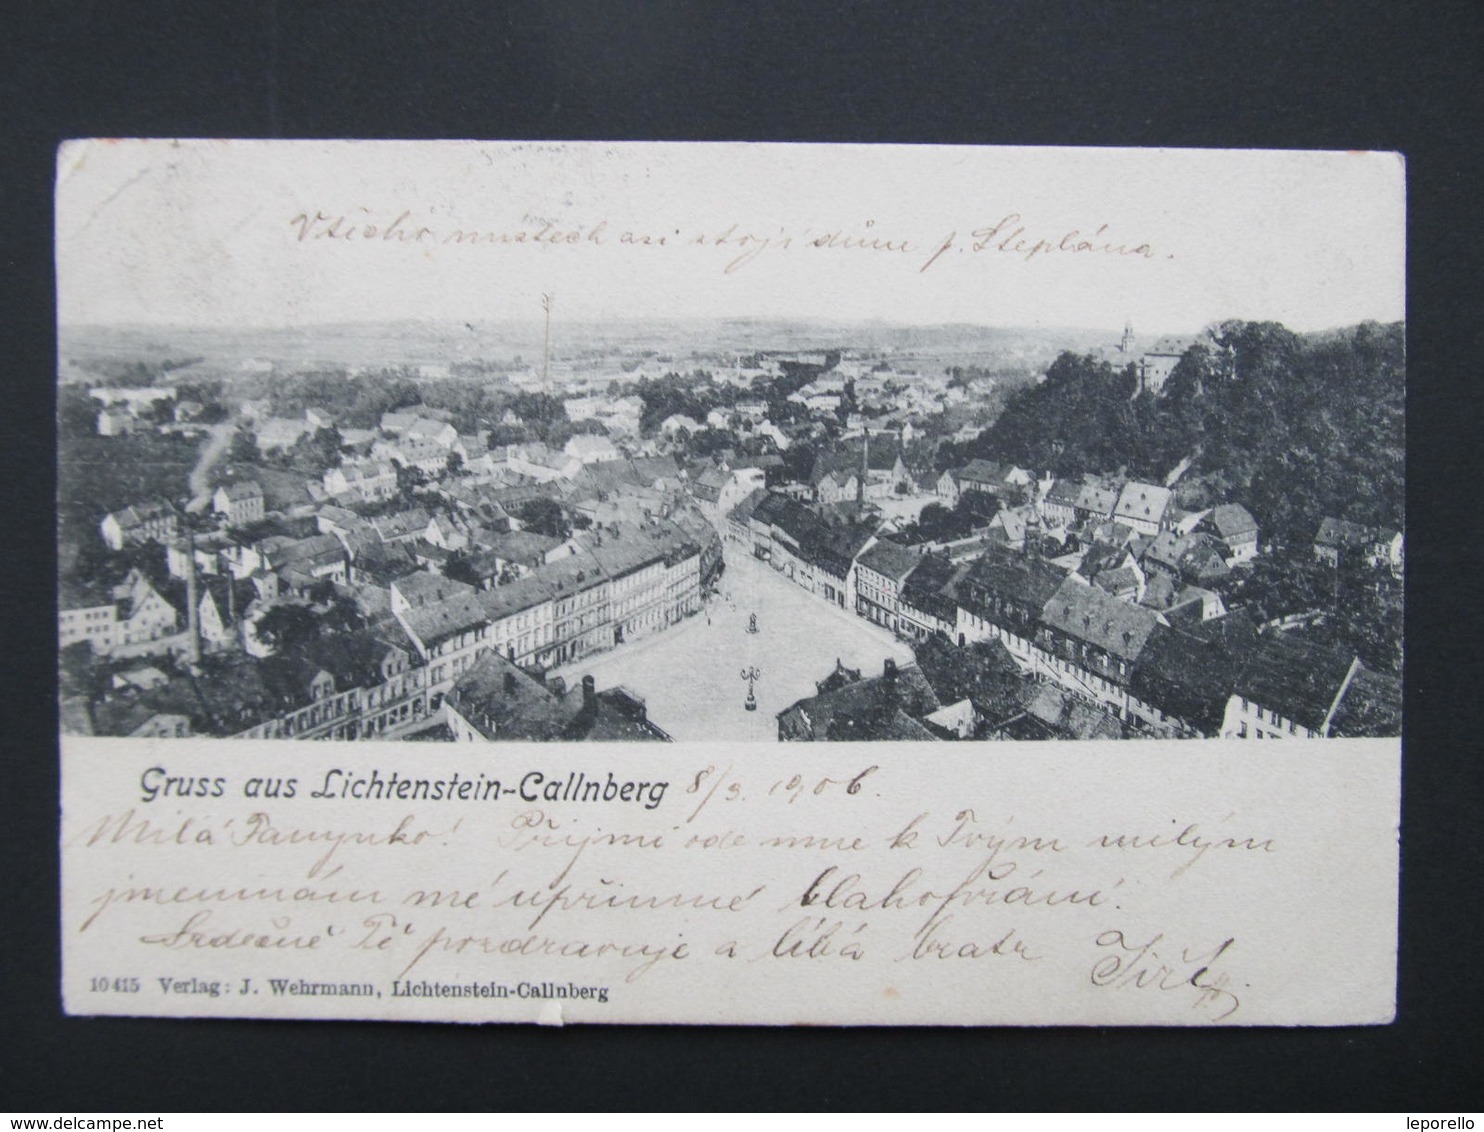 místech asi stojí dům p. Štephána.
Gruss aus Lichtenstein-Callnberg 8/3. 1906.
Milá Fanynko! Přijmi ode mne k Tvým milým
jmeninám mé upřímné blahopřání.
Srdečně Tě pozdravuje a líbá bratr Jiří
10415 Verlag: J. Wehrmann, Lichtenstein-Callnberg
www.delcampe.net
leporello